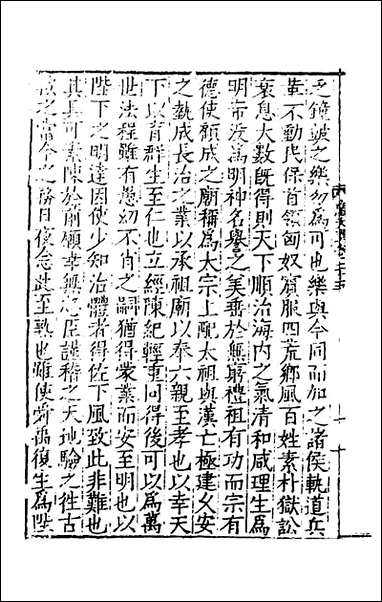 乏鐘皷之樂勿為可也樂與今同而加之諸侯軌道兵
革不動民保首領匈奴賓服四荒鄉風百姓素朴獄訟
衰息大數既得則天下順治海内之氣清和咸理生為
明帝没為明神名譽之美垂於無窮禮祖有功而宗有
德使顧成之廟稱為太宗上配太祖與漢亡極建久安
之埶成長治之業以承祖廟以奉六親至孝也以幸天
下以育群生至仁也立經陳紀輕重同得後可以為萬
世法程雖有愚幼不肖之嗣猶得蒙業而安至明也以
陛下之明達因使少知治體者得佐下風致此非難也
其具可素陳於前願幸無忽臣謹稽之天地驗之往古
按之當今之務日夜念此至孰也雖使舜禹復生為陛